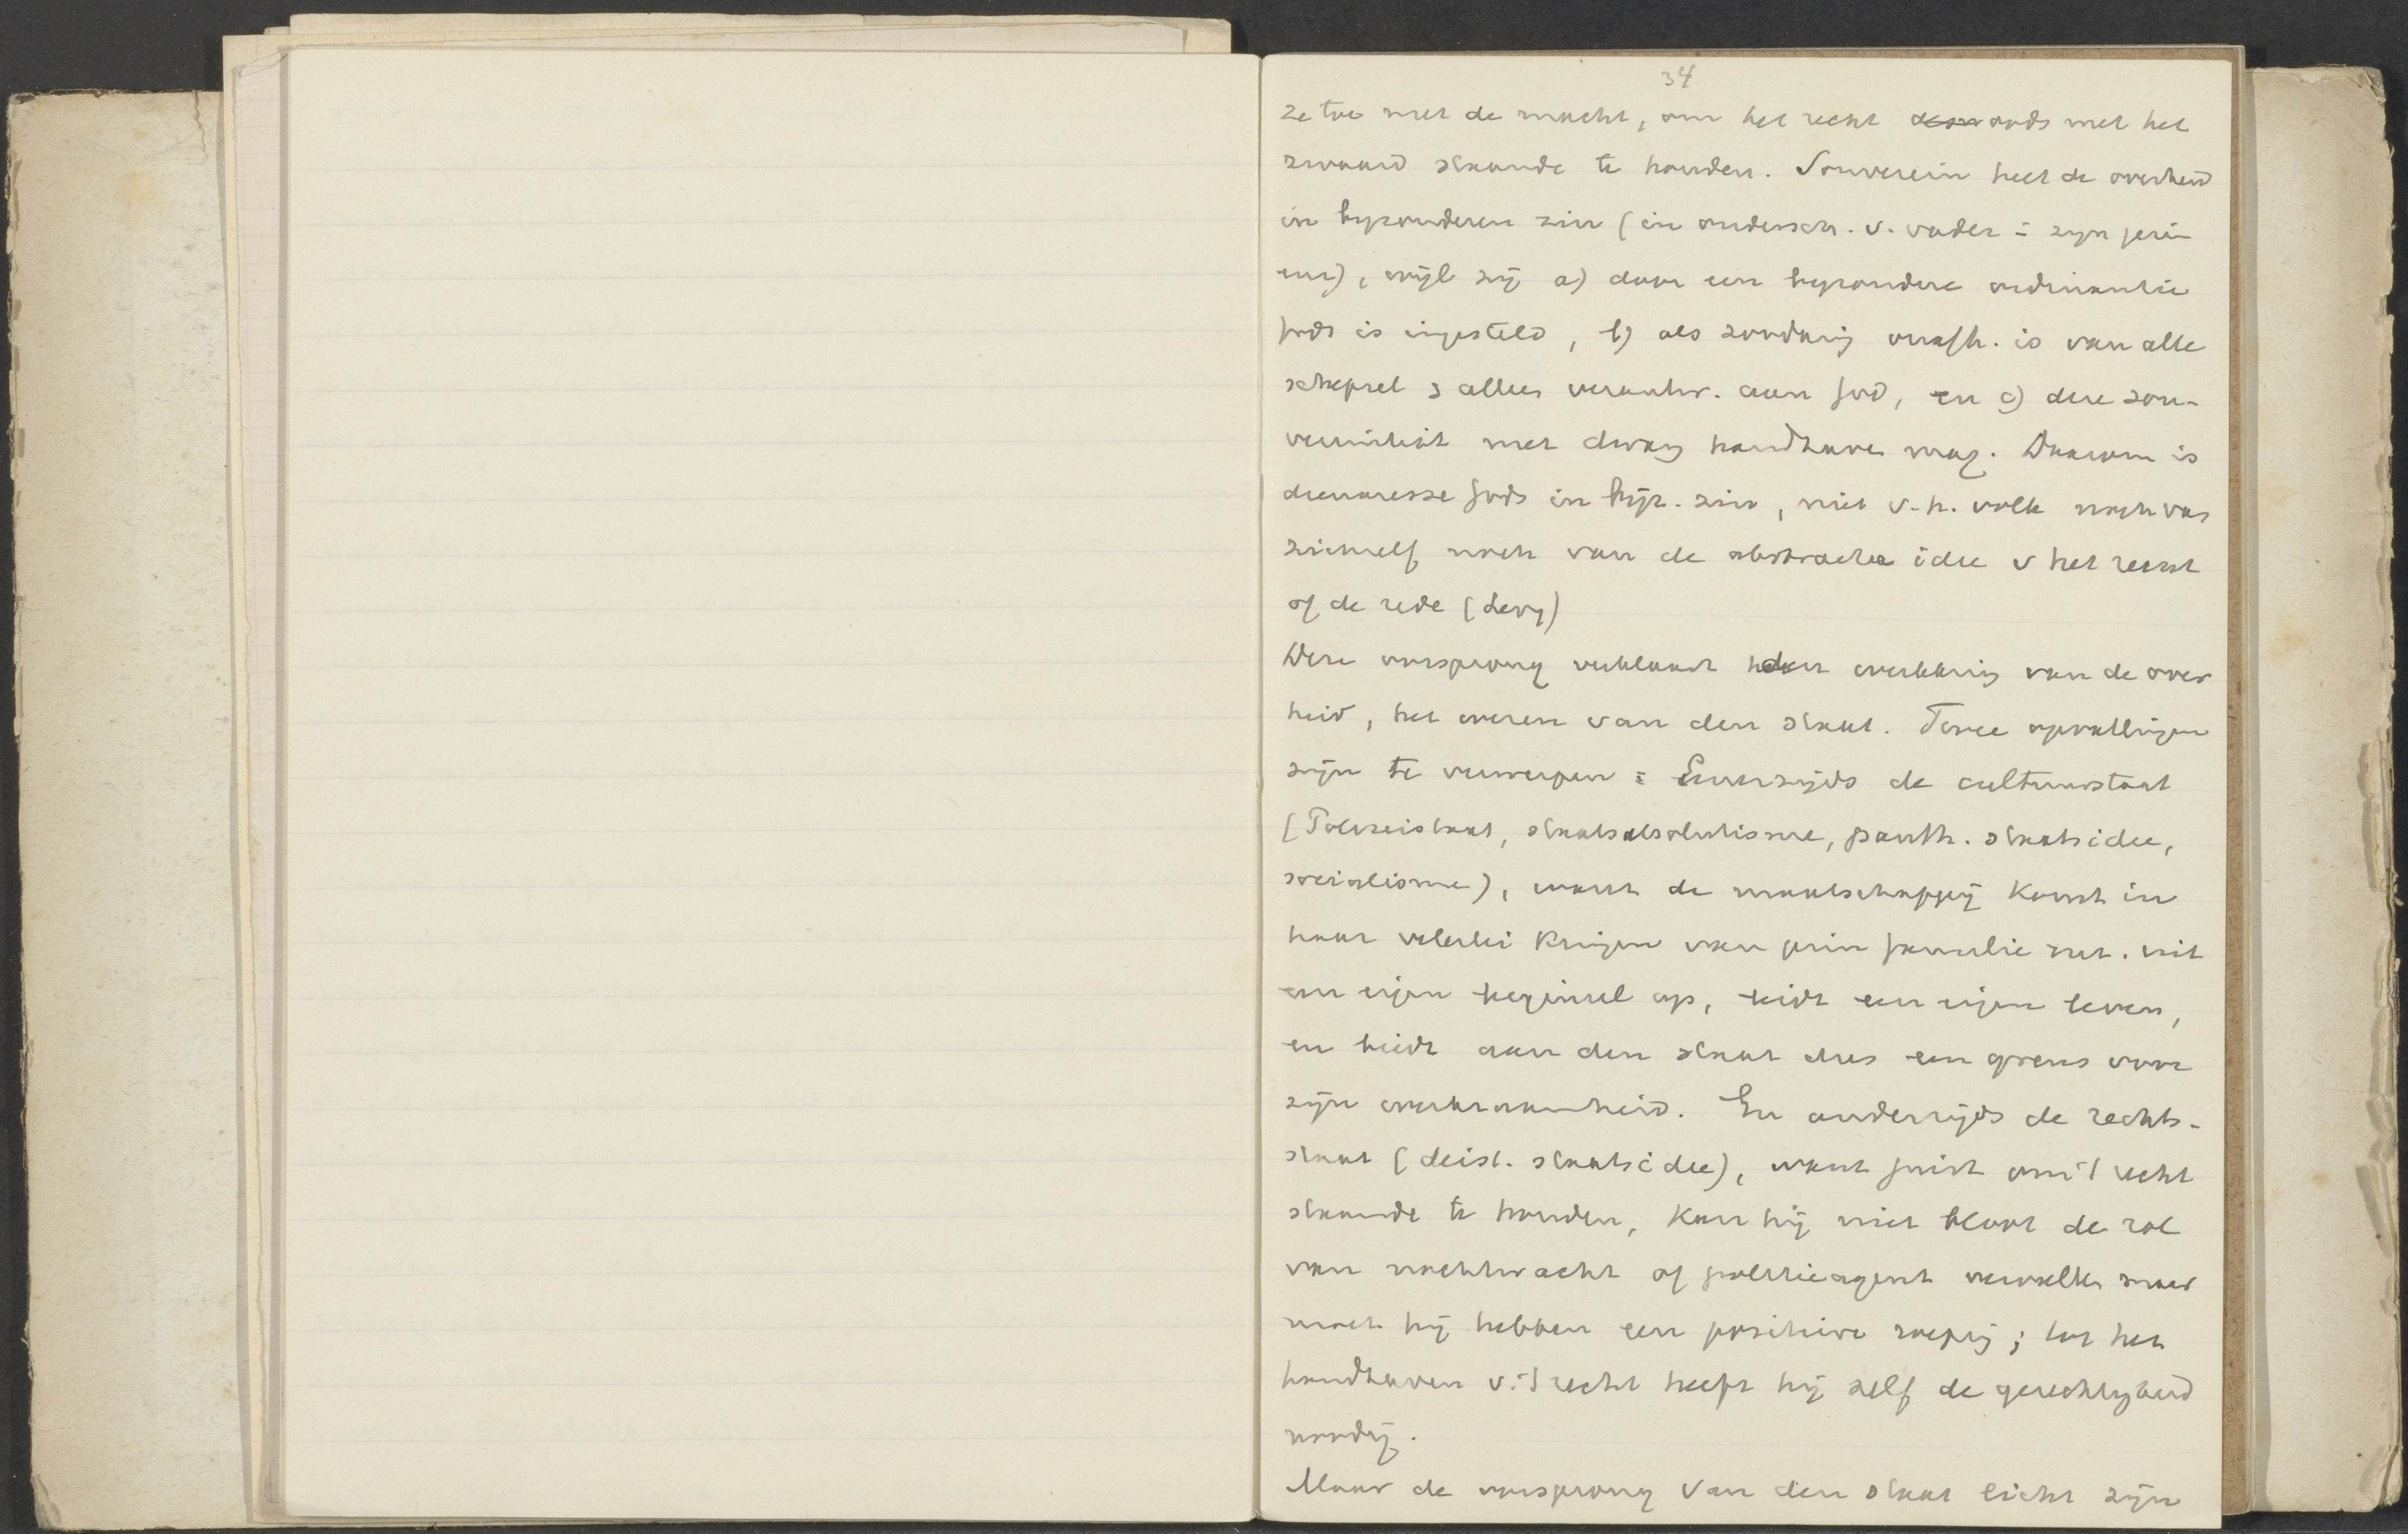 34
ze toe met de macht, om het recht Gods met het
zwaard staande te houden. Souverein heet de overheid
in byzonderen zin (in ondersch. v. vader = zyn gezin
enz), wijl zij a) door een byzondere ordinantie
Gods is ingesteld, b) als zoodanig onafh. is van alle
schepsel & alleen verantw. aan God, en c) deze sou-
vereiniteit met dwang handhaven mag. Daarom is
dienaresse Gods in bijz. zin, niet v. h. volk noch van
zichzelf noch van de abstracte idee v het recht
of de rede (Levy)
Deze oorsprong verklaart de werkkring van de over
heid, het wezen van den staat. Twee opvattingen
zijn te verwerpen: Eenerzijds de cultuurstaat
(Polizeistaat, staatsabsolutisme, panth. staatsidee,
socialisme), want de maatschappij komt in
haar velerlei kringen van gezin familie enz. uit
een eigen beginsel op, leidt een eigen leven,
en biedt aan den staat dus een grens voor
zijn werkzaamheid. En anderzijds de rechts-
staat (deist. staatsidee), want juist om 't recht
staande te houden, kan hij niet bloot de rol
van nachtwacht of politieagent vervullen maar
moet hij hebben een positieve roeping; tot het
handhaven v. 't recht heeft hij zelf de gerechtigheid
noodig.
Maar de oorsprong van den staat licht zijn